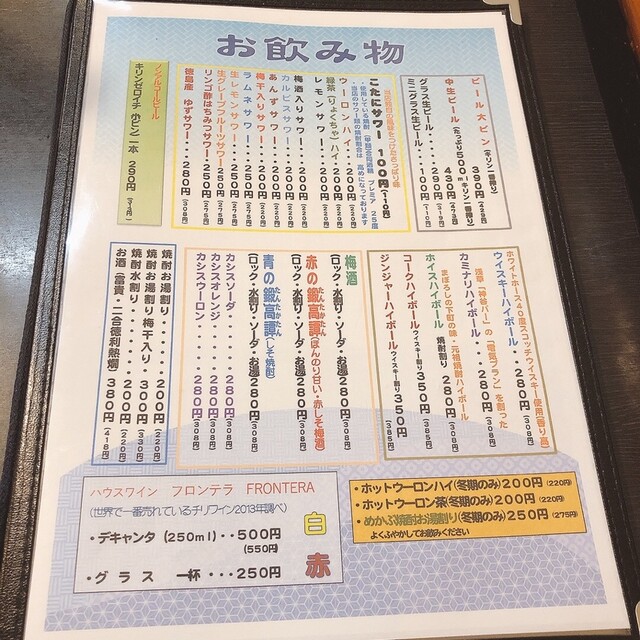 お飲み物
ビール大ビン(キリン一番搾り)
390円(429円)
中生ビール(たっぷり500mlキリン一番搾り)
430円(473円)
グラス生ビール・・・・290円(319円)
ミニグラス生ビール・・・100円(110円)
こだにサワー 100円(110円)
ウーロンハイ・・・200円(220円)
緑茶(りょくちゃ)ハイ・200円(220円)
レモンサワー・・・200円(220円)
梅酒入りサワー・・200円(220円)
カルピスサワー・・200円(220円)
あんずサワー・・・200円(220円)
梅干入りサワー・・200円(220円)
ラムネサワー・・・200円(220円)
生レモンサワー・・250円(275円)
生グレープフルーツサワー・250円(275円)
リンゴ酢はちみつサワー・250円(275円)
徳島産 ゆずサワー・・280円(308円)
ノンアルコールビール
キリンゼロイチ 小ビン一本 290円(319円)
ホワイトホース40度スコッチウイスキー使用(香り高)
ウイスキーハイボール・・280円(308円)
浅草「神谷バー」の「電気ブラン」を割った
カミナリハイボール・・・280円(308円)
まぼろしの下町の味・元祖焼酎ハイボール
ホイスハイボール 焼酎割り 280円(308円)
コークハイボールウイスキー割り350円(385円)
ジンジャーハイボールウイスキー割り350円(385円)
梅酒
(ロック・水割り・ソーダ・お湯)280円(308円)
赤の鍛高譚(ほんのり甘い・赤しそ梅酒)
(ロック・水割り・ソーダ・お湯)280円(308円)
青の鍛高譚(しそ焼酎)
(ロック・水割り・ソーダ・お湯)280円(308円)
カシスソーダ・・・・280円(308円)
カシスオレンジ・・・280円(308円)
カシスウーロン・・・280円(308円)
焼酎お湯割り・・・・200円(220円)
焼酎お湯割り梅干入り・300円(330円)
焼酎水割り・・・・・200円(220円)
お酒(富貴・二合徳利熱燗)380円(418円)
ハウスワイン フロンテラ FRONTERA
(世界で一番売れているチリワイン2013年調べ)
・デキャンタ(250ml)・・500円
(550円)
・グラス 一杯・・・250円
白
赤
・ホットウーロンハイ(冬期のみ)200円(220円)
・ホットウーロン茶(冬期のみ)200円(220円)
・めかぶ焼酎お湯割り(冬期のみ)250円(275円)
よくふやかしてお飲みください